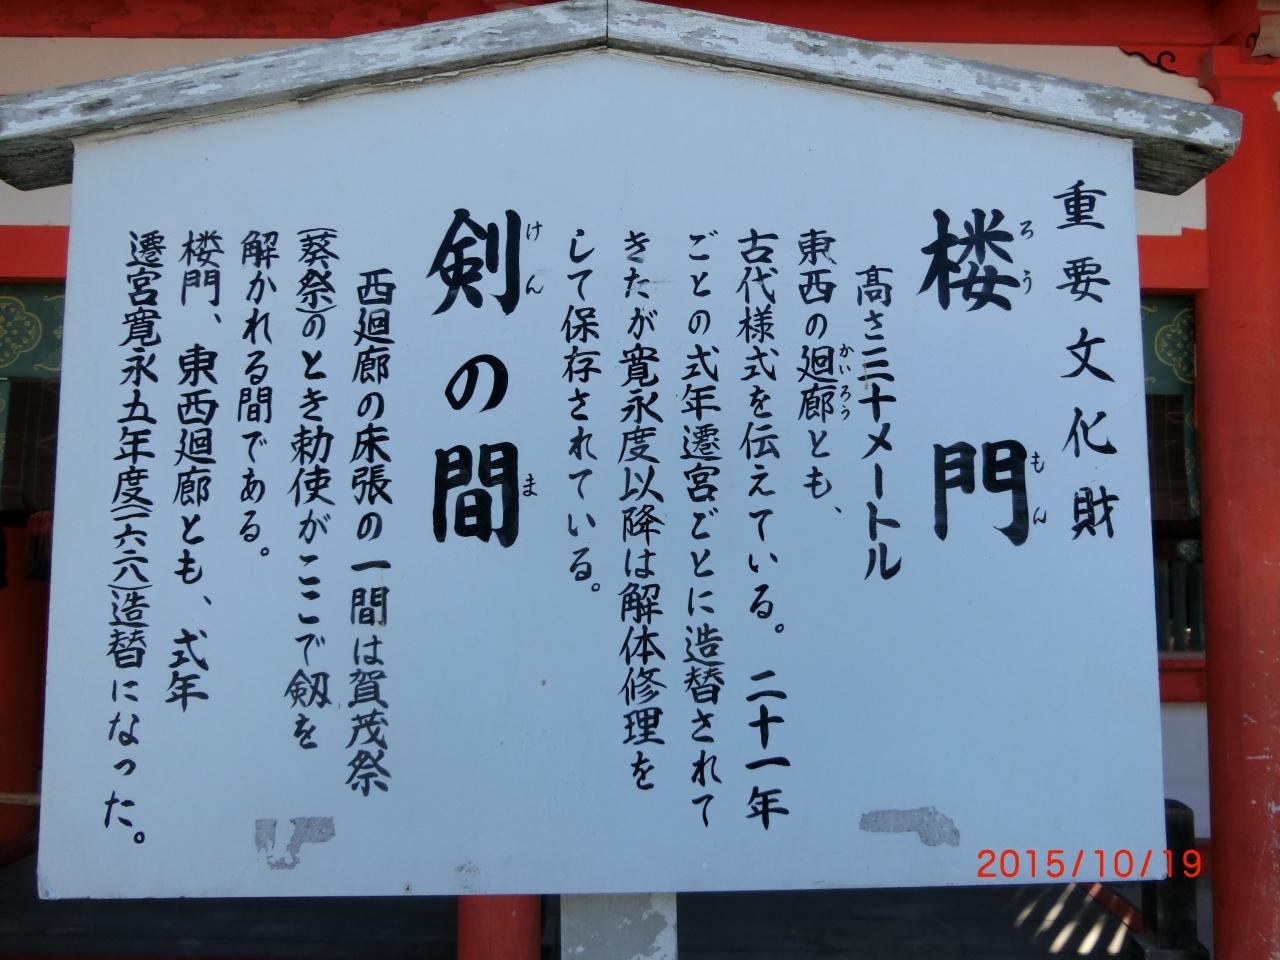 重要文化財
楼門
ろうもん
髙さ三十メートル
東西の廻廊とも、
かいろう
古代様式を伝えている。二十一年
ごとの式年遷宮ごとに造替されて
きたが寛永度以降は解体修理を
して保存されている。
剣の間
けんま
西廻廊の床張の一間は賀茂祭
(葵祭)のとき勅使がここで剱を
解かれる間である。
楼門、東西廻廊とも、式年
遷宮寛永五年度(一六二八)造替になった。
2015/10/19